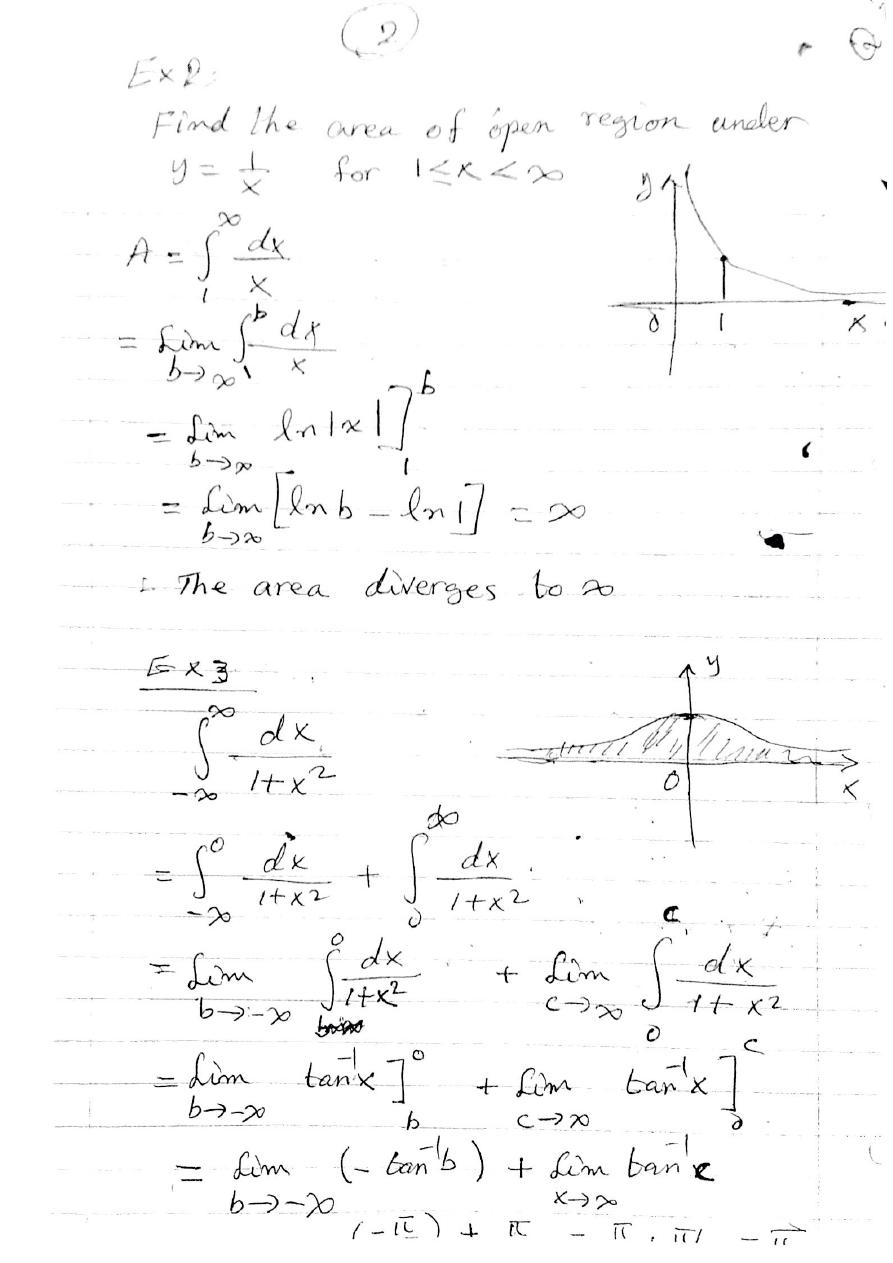 2
Ex 2:
Find the area of open region under
y = 1/x for 1 ≤ x < ∞
y
0 1 x
A = ∫₁^∞ dx/x
= Lim_{b→∞} ∫₁^b dx/x
= Lim_{b→∞} ln|x| ]₁^b
= Lim_{b→∞} [ln b – ln 1] = ∞
∴ The area diverges to ∞
Ex 3
y
0 x
∫_{-∞}^∞ dx/(1+x²)
= ∫_{-∞}^0 dx/(1+x²) + ∫_0^∞ dx/(1+x²)
= Lim_{b→-∞} ∫^0 dx/(1+x²) + Lim_{c→∞} ∫_0^c dx/(1+x²)
= Lim_{b→-∞} tan⁻¹x ]_b^0 + Lim_{c→∞} tan⁻¹x ]_0^c
= Lim_{b→-∞} (– tan⁻¹b) + Lim_{x→∞} tan⁻¹c